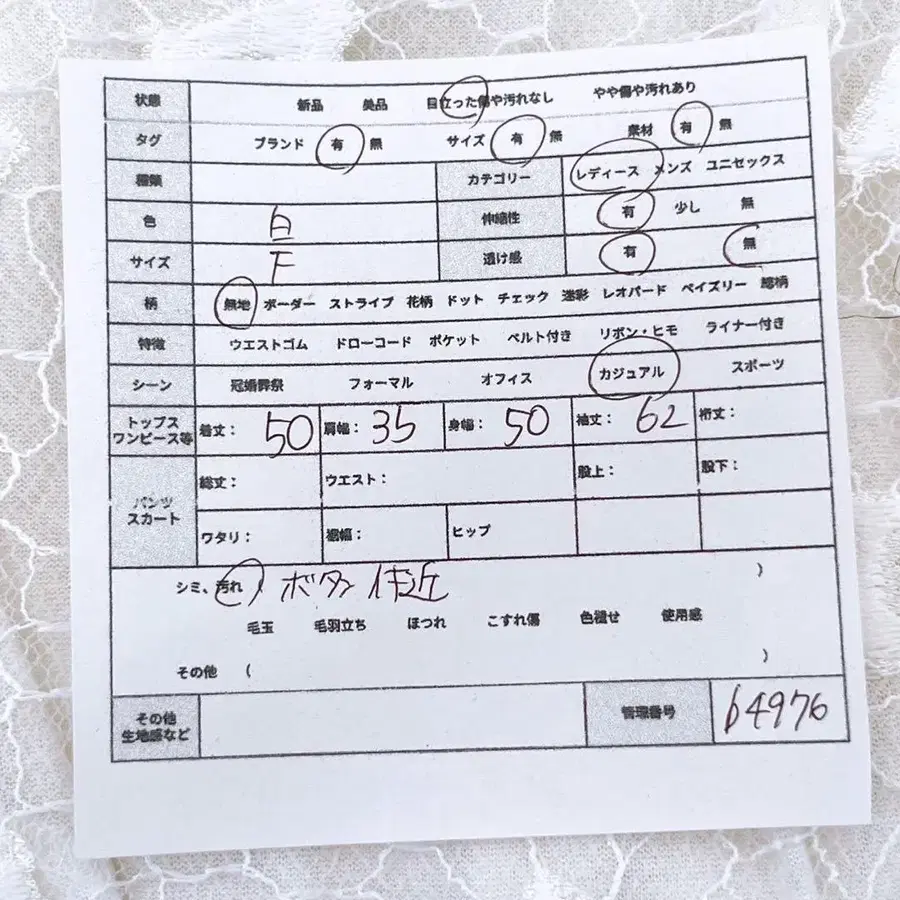 状態 新品 美品 目立った傷や汚れなし やや傷や汚れあり
タグ ブランド 有 無 サイズ 有 無 素材 有 無
種類 カテゴリー レディース メンズ ユニセックス
色 白 伸縮性 有 少し 無
サイズ F 透け感 有 無
柄 無地 ボーダー ストライプ 花柄 ドット チェック 迷彩 レオパード ペイズリー 総柄
特徴 ウエストゴム ドローコード ポケット ベルト付き リボン・ヒモ ライナー付き
シーン 冠婚葬祭 フォーマル オフィス カジュアル スポーツ
トップス
ワンピース等 着丈: 50 肩幅: 35 身幅: 50 袖丈: 62 裄丈:
パンツ
スカート
総丈: ウエスト: 股上: 股下:
ワタリ: 裾幅: ヒップ
シミ、汚れ ボタン 付近 )
毛玉 毛羽立ち ほつれ こすれ傷 色褪せ 使用感
その他 ( )
その他
生地感など
管理番号 b4976